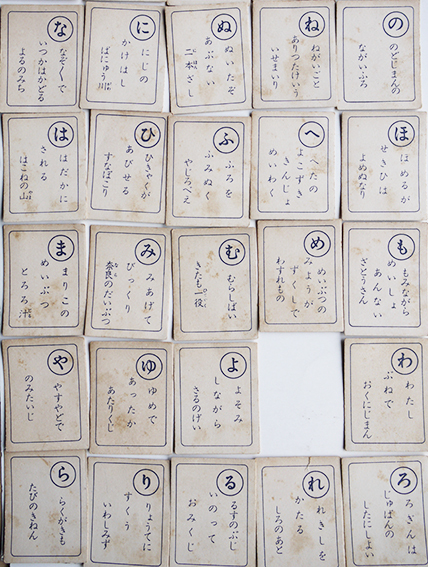 な
なぞ〳〵で
いつかはかどる
よるのみち
に
にじの
かけはし
ばにゅう川
ぬ
ぬいたぞ
あぶない
二本ざし
ね
ねがいごと
ありつたけいう
いせまいり
の
のどじまんの
ながいぶろ
は
はだかに
される
はこねの山
ひ
ひきゃくが
あびせる
すなぼこり
ふ
ふろを
ふみぬく
やじろべえ
へ
へたの
よこずき
きんじょ
めいわく
ほ
ほめるが
せきひは
よめぬなり
ま
まりこの
めいぶつ
とろろ汁
み
みあげて
びっくり
奈良のだいぶつ
む
むらしばい
きたも一役
め
めいぶつの
みょうが
ずくしで
わすれもの
も
もみながら
めいしょ
あんない
ざとうさん
や
やすやどで
のみたいじ
ゆ
ゆめで
あったか
あたりくじ
よ
よそみ
しながら
さるのげい
わ
わたし
ぶねで
おくにじまん
ら
らくがきも
たびのきねん
り
りょうてに
すくう
いわしみず
る
るすのぶじ
いのって
おみくじ
れ
れきしを
かたる
しろのあと
ろ
ろぎんは
じゅばんの
したにしよい